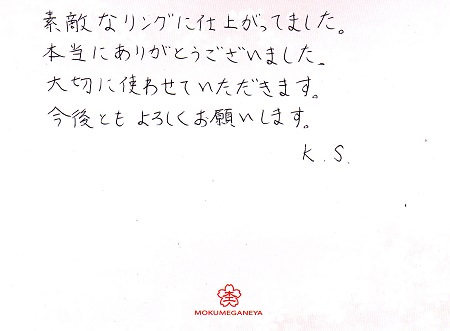 素敵なリングに仕上がってました。
本当にありがとうございました。
大切に使わせていただきます。
今後ともよろしくお願いします。
K.S.
MOKUMEGANEYA